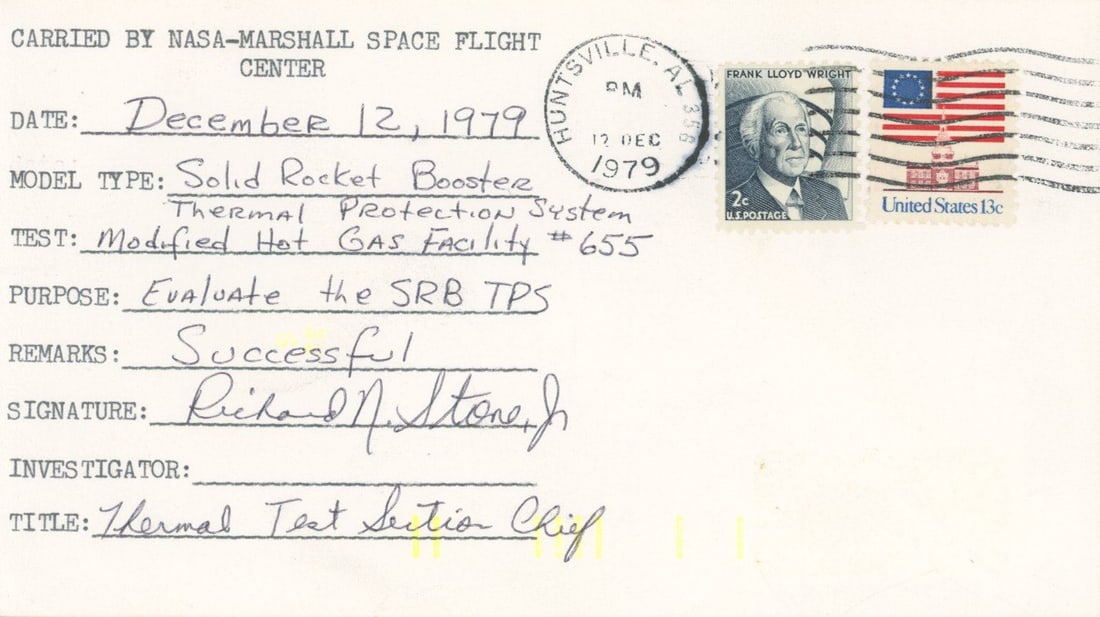 CARRIED BY NASA-MARSHALL SPACE FLIGHT
CENTER
DATE: December 12, 1979
MODEL TYPE: Solid Rocket Booster
Thermal Protection System
TEST: Modified Hot Gas Facility #655
PURPOSE: Evaluate the SRB TPS
REMARKS: Successful
SIGNATURE: Richard N. Stone, Jr
INVESTIGATOR:
TITLE: Thermal Test Section Chief
HUNTSVILLE, AL 358
PM
12 DEC
1979
FRANK LLOYD WRIGHT
2c
U.S. POSTAGE
United States 13c